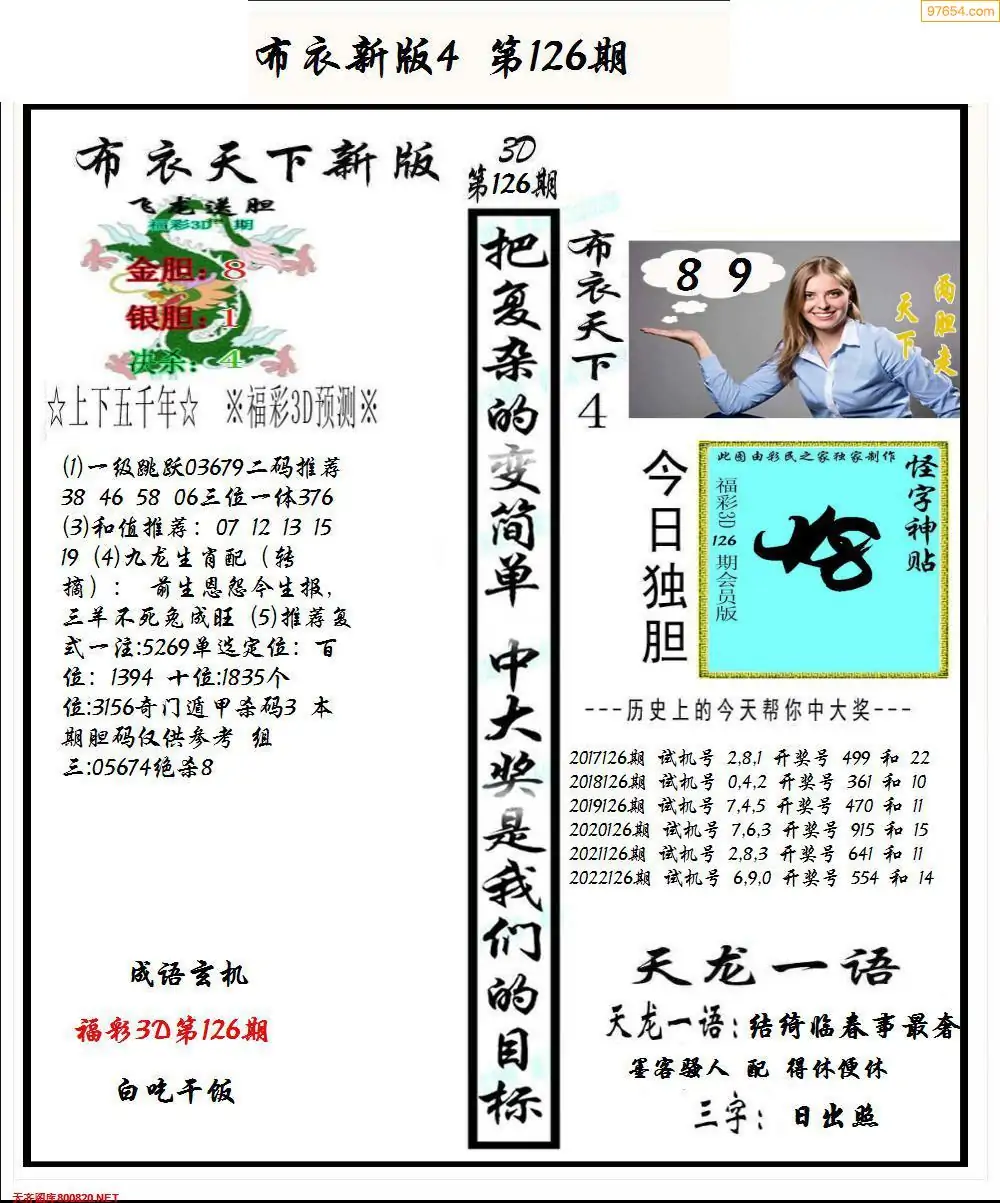 97654.com
布衣新版4 第126期
布衣天下新版
飞龙送胆
福彩3D 期
金胆：8
银胆：1
决杀：4
☆上下五千年☆ ※福彩3D预测※
(1)一级跳跃03679二码推荐
38 46 58 06三位一体376
(3)和值推荐：07 12 13 15
19 (4)九龙生肖配（转
摘）： 前生恩怨今生报，
三羊不死兔成旺 (5)推荐复
式一注:5269单选定位：百
位：1394 十位:1835个
位:3156奇门遁甲杀码3 本
期胆码仅供参考 组
三:05674绝杀8
成语玄机
福彩3D第126期
白吃干饭
3D
第126期
把复杂的变简单 中大奖是我们的目标
布衣天下4
8 9
两胆走
天下
今日独胆
此图由彩民之家独家制作
怪字神贴
福彩3D 126 期会员版
---历史上的今天帮你中大奖---
2017126期 试机号 2,8,1 开奖号 499 和 22
2018126期 试机号 0,4,2 开奖号 361 和 10
2019126期 试机号 7,4,5 开奖号 470 和 11
2020126期 试机号 7,6,3 开奖号 915 和 15
2021126期 试机号 2,8,3 开奖号 641 和 11
2022126期 试机号 6,9,0 开奖号 554 和 14
天龙一语
天龙一语：结绮临春事最奢
墨客骚人 配 得休便休
三字： 日出照
天齐图库800820.NET